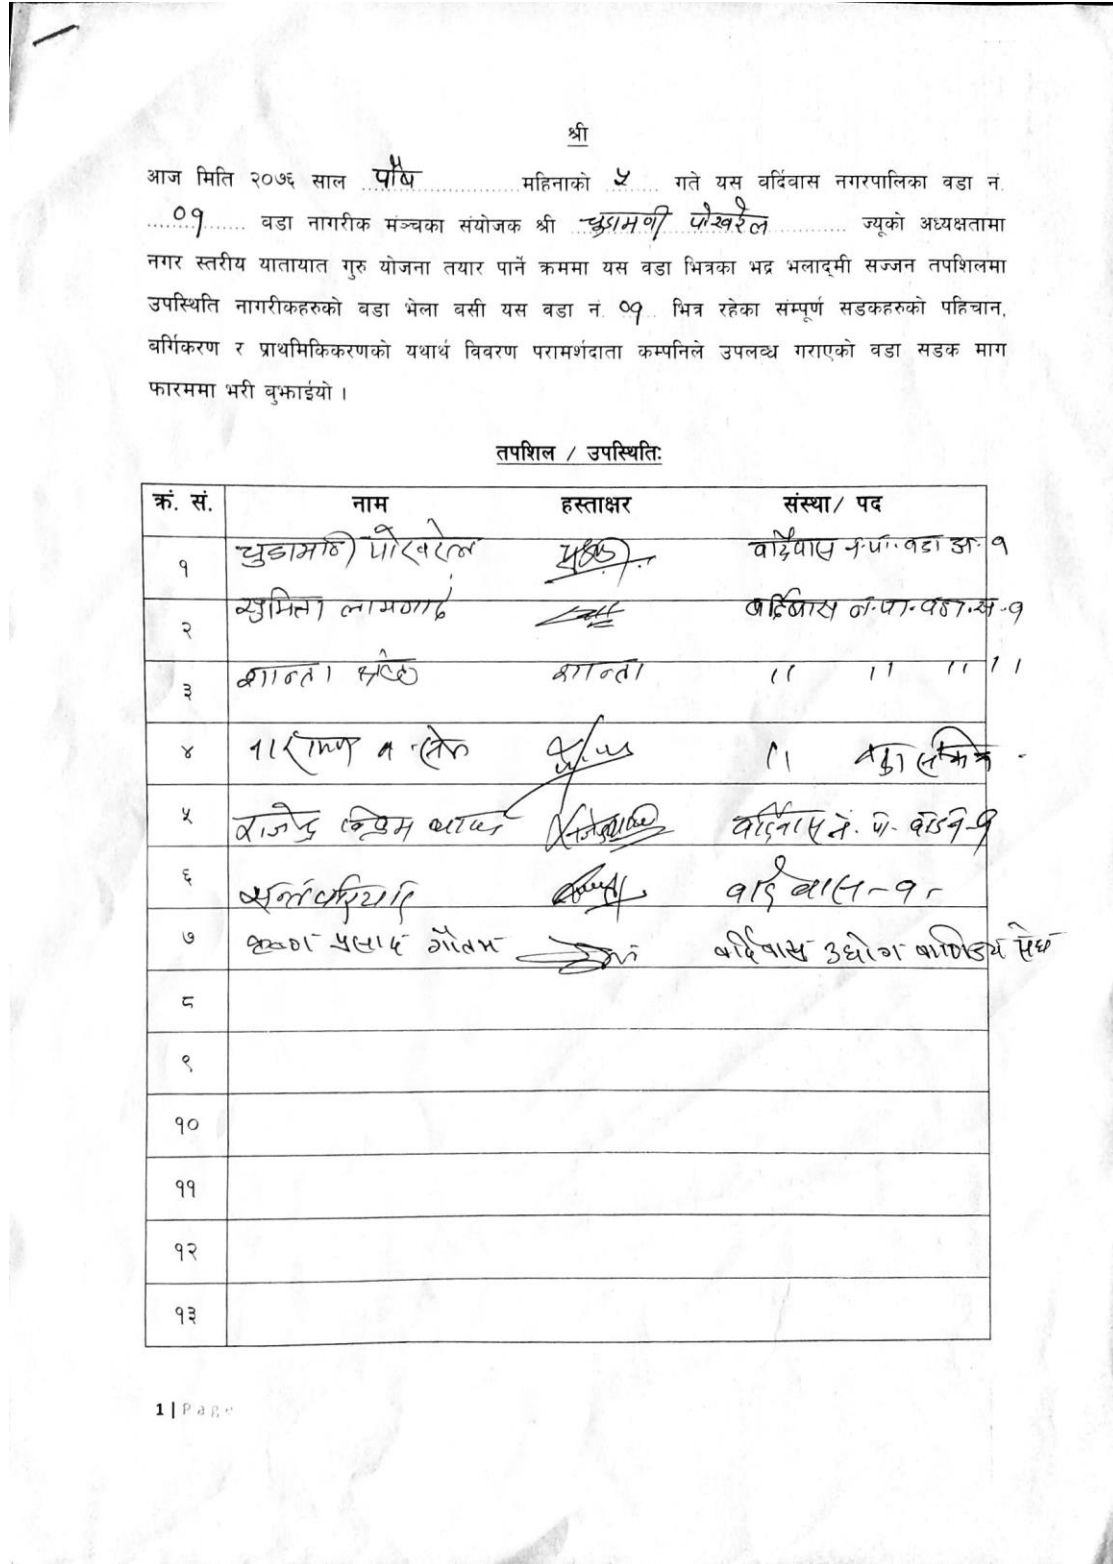 श्री
आज मिति २०७६ साल पौष महिनाको ५ गते यस वर्दिवास नगरपालिका वडा नं.
०१ वडा नागरीक मञ्चका संयोजक श्री चुडामणी पोखरेल ज्यूको अध्यक्षतामा
नगर स्तरीय यातायात गुरु योजना तयार पार्ने क्रममा यस वडा भित्रका भद्र भलाद्मी सज्जन तपशिलमा
उपस्थिति नागरीकहरुको वडा भेला वसी यस वडा नं. ०१ भित्र रहेका संम्पूर्ण सडकहरुको पहिचान,
बर्गिकरण र प्राथमिकिकरणको यथार्थ विवरण परामर्शदाता कम्पनिले उपलब्ध गराएको वडा सडक माग
फारममा भरी वुझाईयो ।
तपशिल / उपस्थितिः
क्रं. सं. नाम हस्ताक्षर संस्था/ पद
१ चुडामणी पोखरेल वर्दिवास न.पा. वडा अ. १
२ सुमित्रा लामगादे बर्दिबास न.पा. वडा.स.-१
३ शान्ता श्रेष्ठ शान्ता " " " "
४ नारायण " वडा सचिव
५ राजेन्द्र वर्दिवास न. पा. १
६ वर्दिवास-१
७ कृष्ण प्रसाद गौतम बर्दिबास उद्योग बाणिज्य संघ
८
९
१०
११
१२
१३
1 | Page